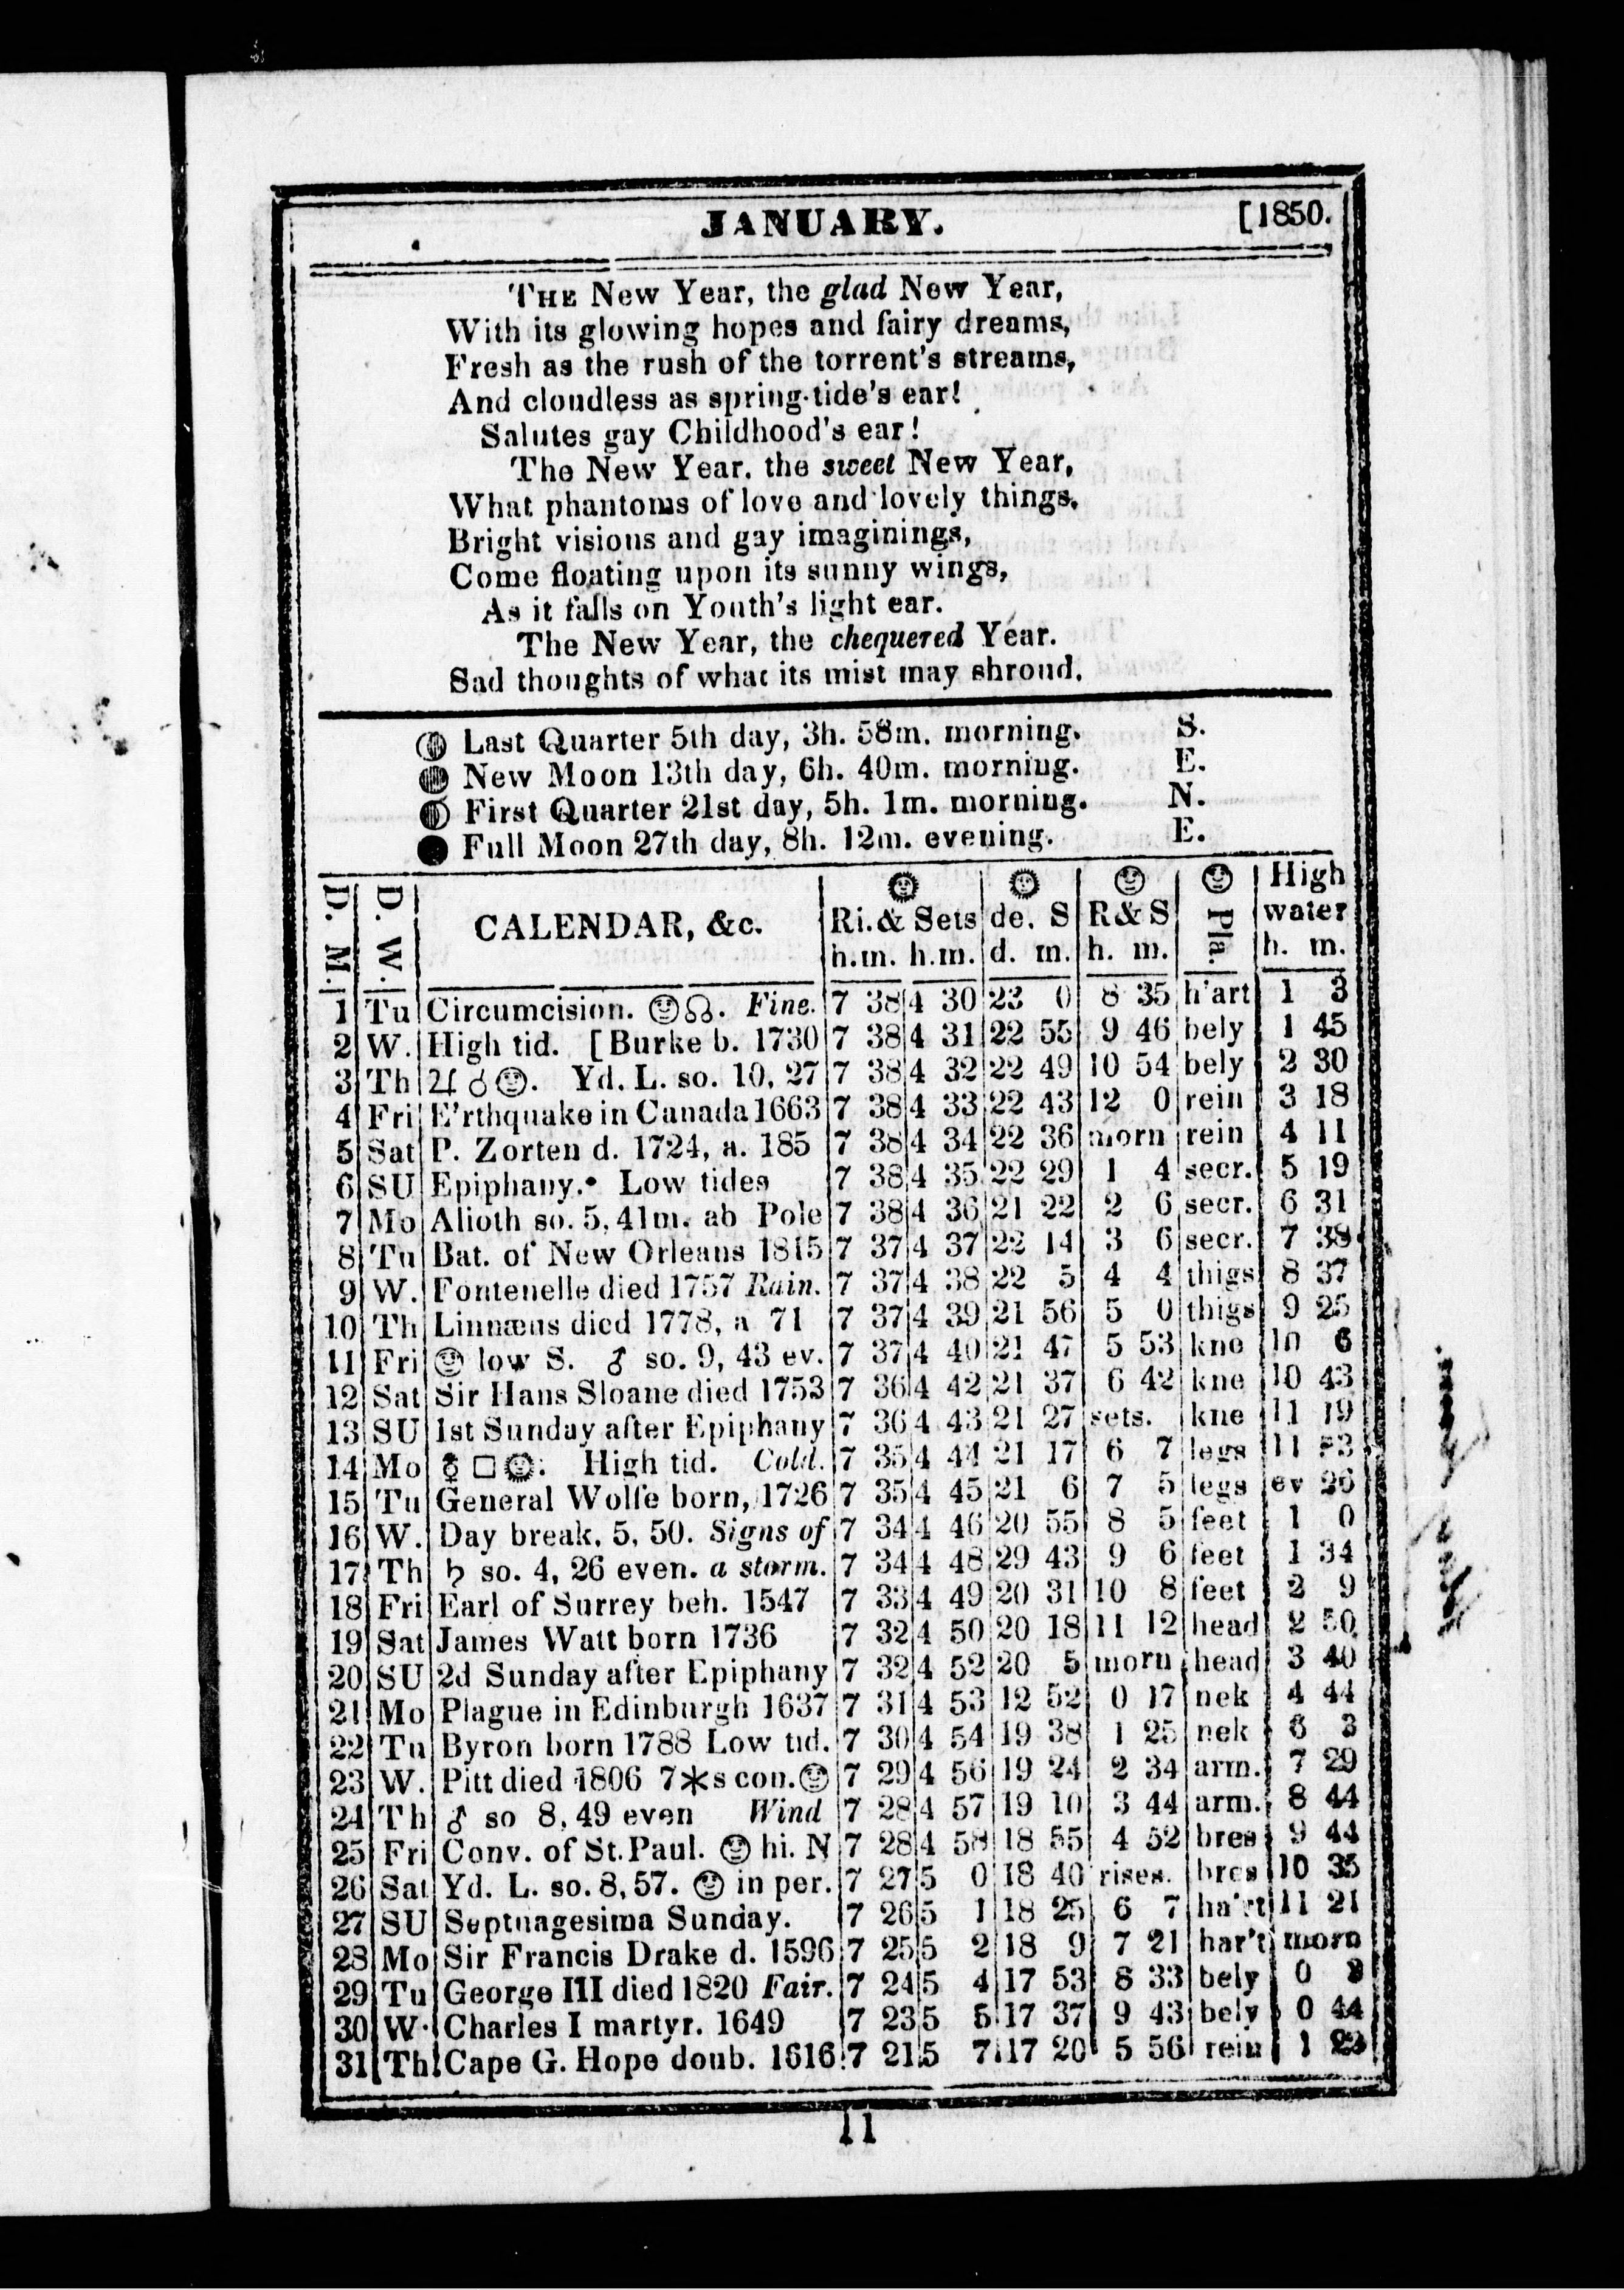 JANUARY. [1850.
THE New Year, the glad New Year,
With its glowing hopes and fairy dreams,
Fresh as the rush of the torrent's streams,
And cloudless as spring-tide's ear!
Salutes gay Childhood's ear!
The New Year, the sweet New Year,
What phantoms of love and lovely things,
Bright visions and gay imaginings,
Come floating upon its sunny wings,
As it falls on Youth's light ear.
The New Year, the chequered Year.
Sad thoughts of what its mist may shroud.
Last Quarter 5th day, 3h. 58m. morning. S.
New Moon 13th day, 6h. 40m. morning. E.
First Quarter 21st day, 5h. 1m. morning. N.
Full Moon 27th day, 8h. 12m. evening. E.
D. M. D. W. CALENDAR, &c. Ri. & Sets de. S R & S Pla. High water
h.m. h.m. d. m. h. m. h. m.
1 Tu Circumcision. ☊. Fine. 7 38 4 30 23 0 8 35 h'art 1 3
2 W. High tid. [Burke b. 1730 7 38 4 31 22 55 9 46 bely 1 45
3 Th ♃ ☌ . Yd. L. so. 10, 27 7 38 4 32 22 49 10 54 bely 2 30
4 Fri E'rthquake in Canada 1663 7 38 4 33 22 43 12 0 rein 3 18
5 Sat P. Zorten d. 1724, a. 185 7 38 4 34 22 36 morn rein 4 11
6 SU Epiphany. Low tides 7 38 4 35 22 29 1 4 secr. 5 19
7 Mo Alioth so. 5, 41m. ab Pole 7 38 4 36 21 22 2 6 secr. 6 31
8 Tu Bat. of New Orleans 1815 7 37 4 37 22 14 3 6 secr. 7 38
9 W. Fontenelle died 1757 Rain. 7 37 4 38 22 5 4 4 thigs 8 37
10 Th Linnæus died 1778, a 71 7 37 4 39 21 56 5 0 thigs 9 25
11 Fri low S. ♂ so. 9, 43 ev. 7 37 4 40 21 47 5 53 kne 10 6
12 Sat Sir Hans Sloane died 1753 7 36 4 42 21 37 6 42 kne 10 43
13 SU 1st Sunday after Epiphany 7 36 4 43 21 27 sets. kne 11 19
14 Mo ☿ □ . High tid. Cold. 7 35 4 44 21 17 6 7 legs 11 53
15 Tu General Wolfe born, 1726 7 35 4 45 21 6 7 5 legs ev 26
16 W. Day break, 5, 50. Signs of 7 34 4 46 20 55 8 5 feet 1 0
17 Th ♄ so. 4, 26 even. a storm. 7 34 4 48 29 43 9 6 feet 1 34
18 Fri Earl of Surrey beh. 1547 7 33 4 49 20 31 10 8 feet 2 9
19 Sat James Watt born 1736 7 32 4 50 20 18 11 12 head 2 50
20 SU 2d Sunday after Epiphany 7 32 4 52 20 5 morn head 3 40
21 Mo Plague in Edinburgh 1637 7 31 4 53 12 52 0 17 nek 4 44
22 Tu Byron born 1788 Low tid. 7 30 4 54 19 38 1 25 nek 6 3
23 W. Pitt died 1806 7*s con. 7 29 4 56 19 24 2 34 arm. 7 29
24 Th ♂ so 8, 49 even Wind 7 28 4 57 19 10 3 44 arm. 8 44
25 Fri Conv. of St. Paul. hi. N 7 28 4 58 18 55 4 52 bres 9 44
26 Sat Yd. L. so. 8, 57. in per. 7 27 5 0 18 40 rises. bres 10 35
27 SU Septuagesima Sunday. 7 26 5 1 18 25 6 7 ha'rt 11 21
28 Mo Sir Francis Drake d. 1596 7 25 5 2 18 9 7 21 har't morn
29 Tu George III died 1820 Fair. 7 24 5 4 17 53 8 33 bely 0
30 W. Charles I martyr. 1649 7 23 5 5 17 37 9 43 bely 0 44
31 Th Cape G. Hope doub. 1616 7 21 5 7 17 20 5 56 rein 1
11